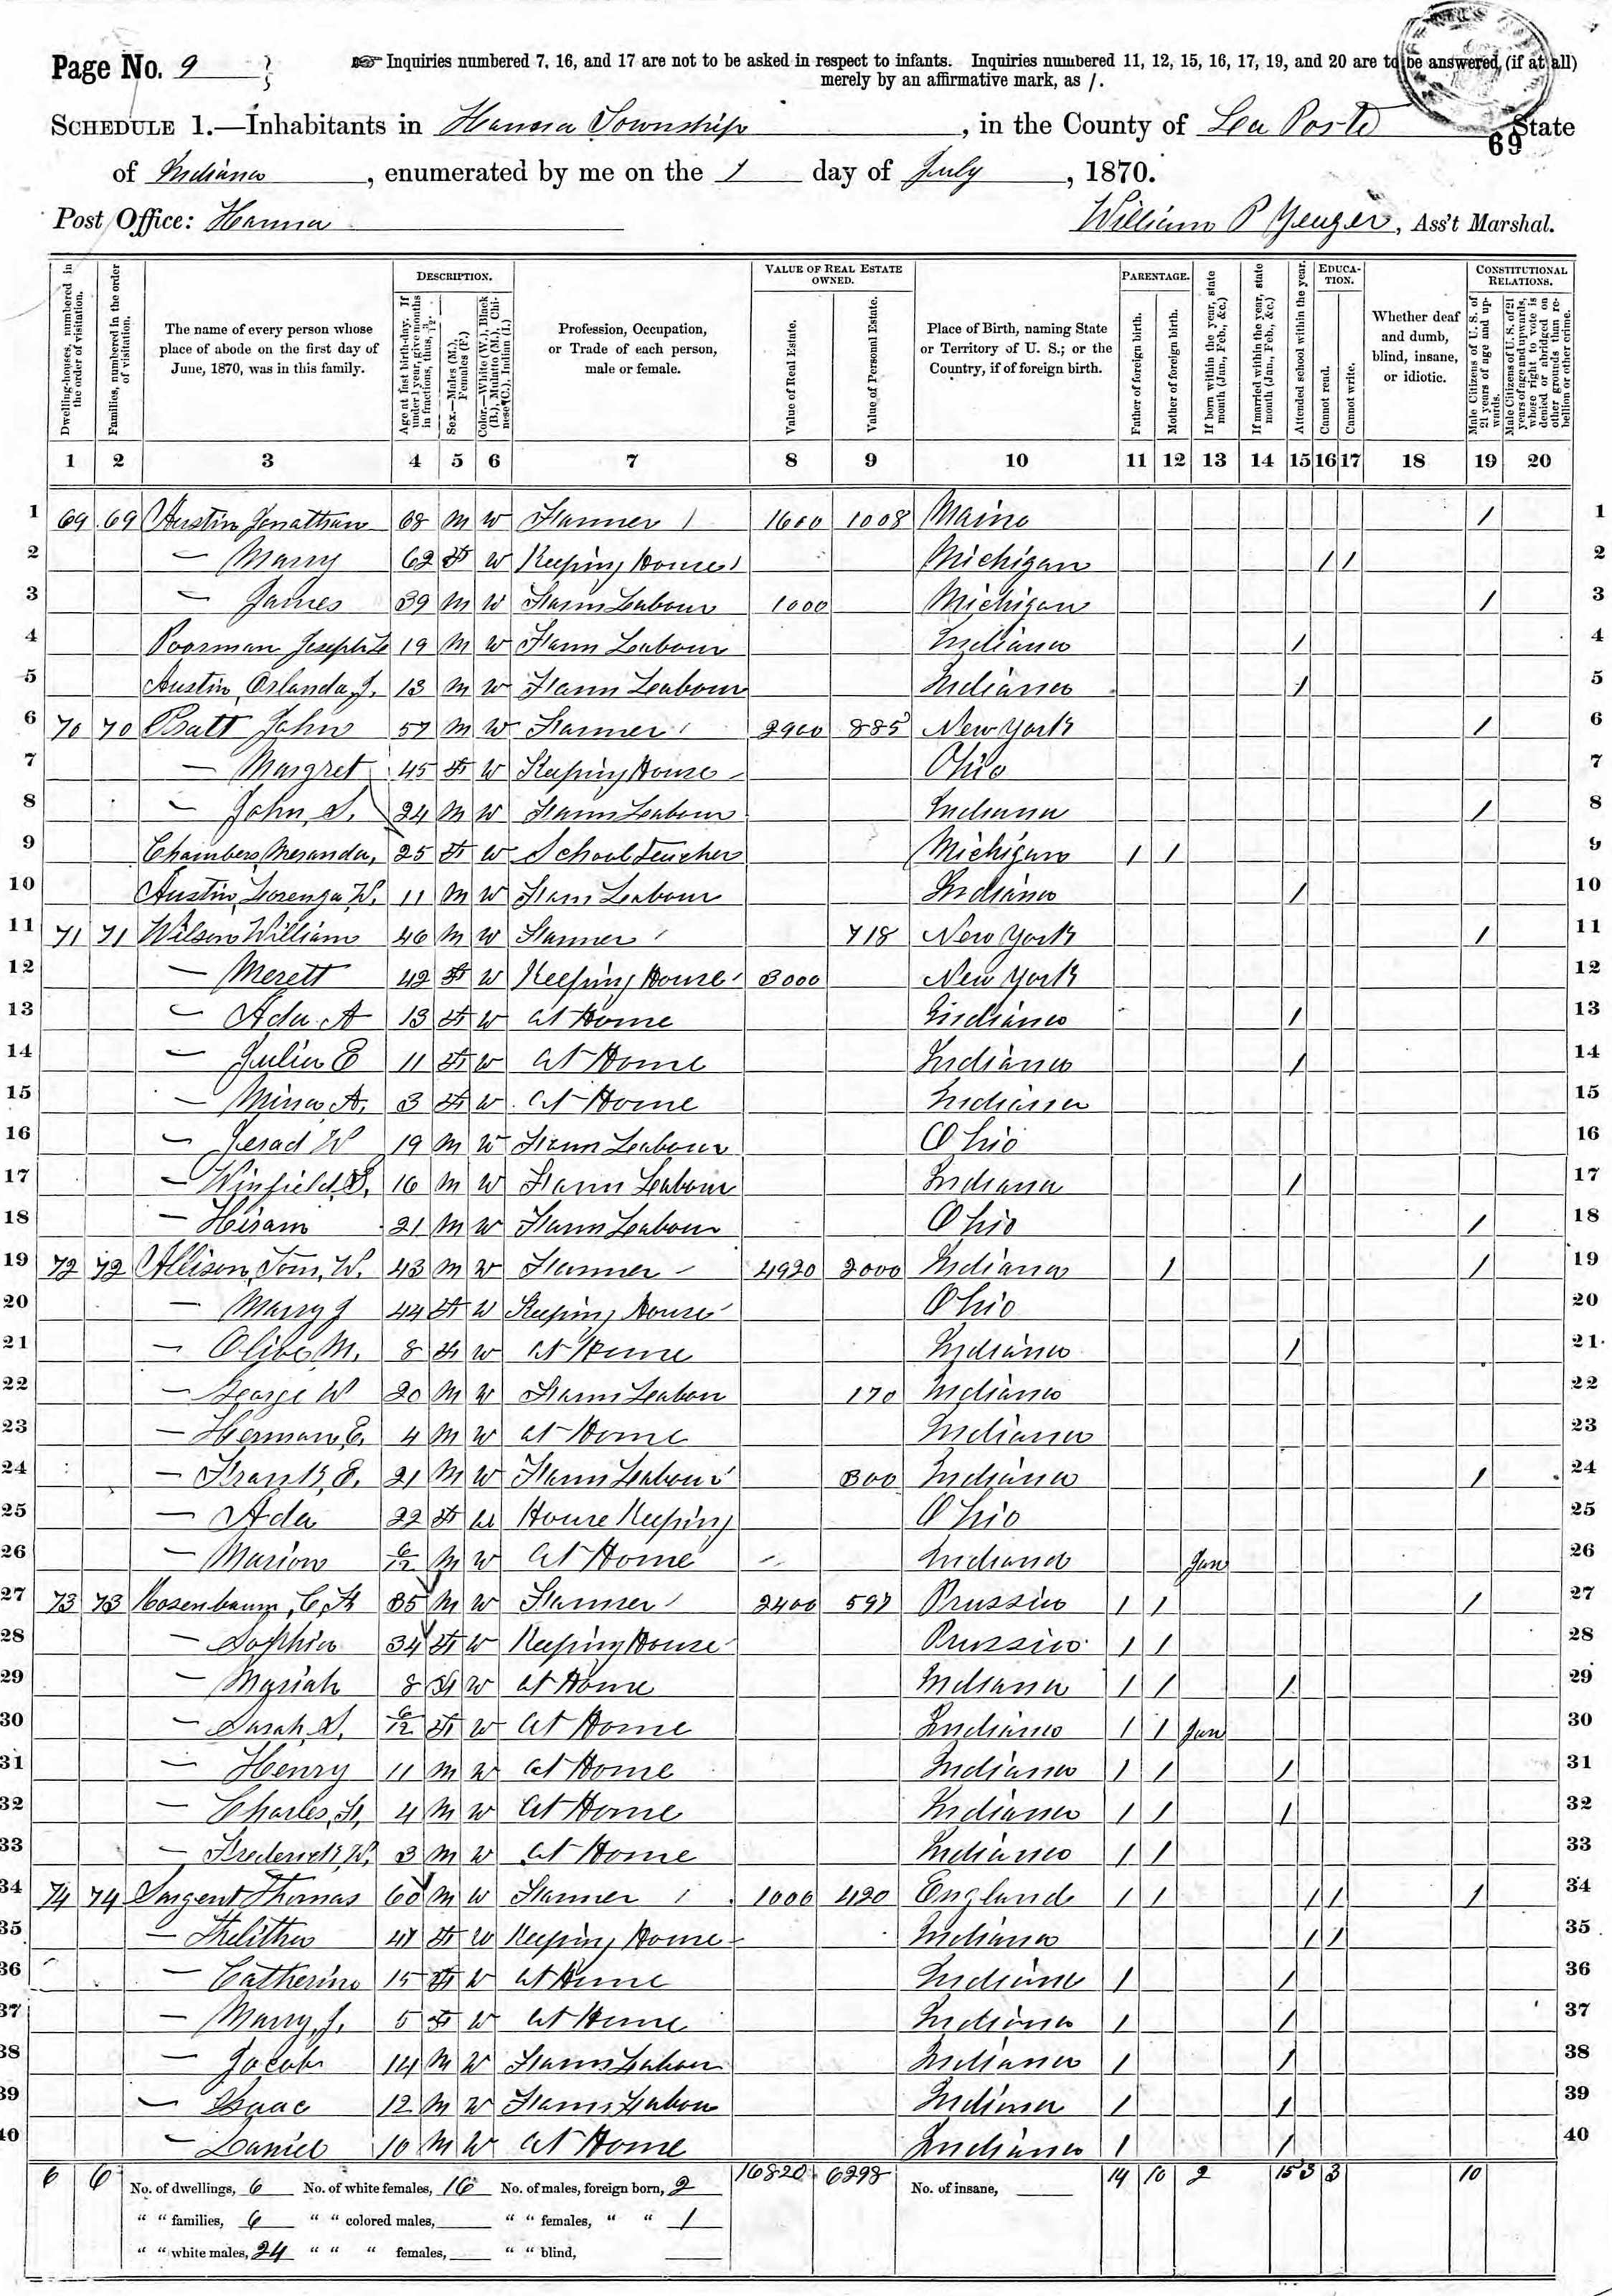 Page No. 9
☞ Inquiries numbered 7, 16, and 17 are not to be asked in respect to infants. Inquiries numbered 11, 12, 15, 16, 17, 19, and 20 are to be answered (if at all)
merely by an affirmative mark, as /.
SCHEDULE 1.—Inhabitants in Hanna Township, in the County of Porte State
69
of Indiana, enumerated by me on the 1 day of July, 1870.
Post Office: Hanna William P Yeager, Ass't Marshal.
Dwelling-houses, numbered in the order of visitation.
Families, numbered in the order of visitation.
The name of every person whose place of abode on the first day of June, 1870, was in this family.
DESCRIPTION.
Age at last birth-day. If under 1 year, give months in fractions, thus, 3/12.
Sex.—Males (M.), Females (F.)
Color.—White (W.), Black (B.), Mulatto (M.), Chinese (C.), Indian (I.)
Profession, Occupation, or Trade of each person, male or female.
VALUE OF REAL ESTATE OWNED.
Value of Real Estate.
Value of Personal Estate.
Place of Birth, naming State or Territory of U. S.; or the Country, if of foreign birth.
PARENTAGE.
Father of foreign birth.
Mother of foreign birth.
If born within the year, state month (Jan., Feb., &c.)
If married within the year, state month (Jan., Feb., &c.)
Attended school within the year.
EDUCATION.
Cannot read.
Cannot write.
Whether deaf and dumb, blind, insane, or idiotic.
CONSTITUTIONAL RELATIONS.
Male Citizens of U. S. of 21 years of age and upwards.
Male Citizens of U. S. of 21 years of age and upwards, whose right to vote is denied or abridged on other grounds than rebellion or other crime.
1 2 3 4 5 6 7 8 9 10 11 12 13 14 15 16 17 18 19 20
1 69 69 Austin Jonathan 68 M W Farmer / 1600 1008 Maine / 1
2 — Marry 62 F W Keeping House / Michigan / / 2
3 — James 39 M W Farm Labour 1000 Michigan / 3
4 Poorman Joseph 19 M W Farm Labour Indiana / 4
5 Austin, Orlanda, J. 13 M W Farm Labour Indiana / 5
6 70 70 Pratt John 57 M W Farmer / 2900 885 New York / 6
7 — Margret 45 F W Keeping House Ohio 7
8 — John, S. 24 M W Farm Labour Indiana / 8
9 Chambers, Meranda, 25 F W School Teacher Michigan / / 9
10 Austin, Lorenzo W. 11 M W Farm Labour Indiana / 10
11 71 71 Wilson William 46 M W Farmer / 718 New York / 11
12 — Merett 42 F W Keeping House 3000 New York 12
13 — Ada A 13 F W At Home Indiana / 13
14 — Julia E 11 F W At Home Indiana / 14
15 — Mina A. 3 F W At Home Indiana 15
16 — Jerad W 19 M W Farm Labour Ohio 16
17 — Winfield, S. 16 M W Farm Labour Indiana / 17
18 — Hiram 21 M W Farm Labour Ohio / 18
19 72 72 Allison, Tom, W. 43 M W Farmer 4920 2000 Indiana / / 19
20 — Marry J 44 F W Keeping House Ohio 20
21 — Olive M. 8 F W At Home Indiana / 21
22 — George W 20 M W Farm Labour 170 Indiana 22
23 — Herman, E. 4 M W At Home Indiana 23
24 — Frank, E. 21 M W Farm Labour 300 Indiana / 24
25 — Ada 22 F W House Keeping Ohio 25
26 — Marion 6/12 M W At Home Indiana Jan 26
27 73 73 Rosenbaum, C, F 35 M W Farmer / 2400 597 Prussia / / / 27
28 — Sophia 34 F W Keeping House Prussia / / 28
29 — Mariah 8 F W At Home Indiana / / / 29
30 — Sarah, S. 6/12 F W At Home Indiana / / Jan 30
31 — Henry 11 M W At Home Indiana / / / 31
32 — Charles, F, 4 M W At Home Indiana / / / 32
33 — Frederick, W. 3 M W At Home Indiana / / 33
34 74 74 Sargent Thomas 60 M W Farmer / 1000 420 England / / / / / 34
35 — Thelitha 41 F W Keeping House Indiana / / 35
36 — Catherine 15 F W At Home Indiana / / 36
37 — Marry, J. 5 F W At Home Indiana / / 37
38 — Jacob 14 M W Farm Labour Indiana / / 38
39 — Isaac 12 M W Farm Labour Indiana / / 39
40 — Daniel 10 M W At Home Indiana / / 40
6 6 No. of dwellings, 6 No. of white females, 16 No. of males, foreign born, 2 16820 6298 No. of insane, 14 10 2 15 3 3 10
" " families, 6 " " colored males, " " females, " " 1
" " white males, 24 " " " females, " " blind,